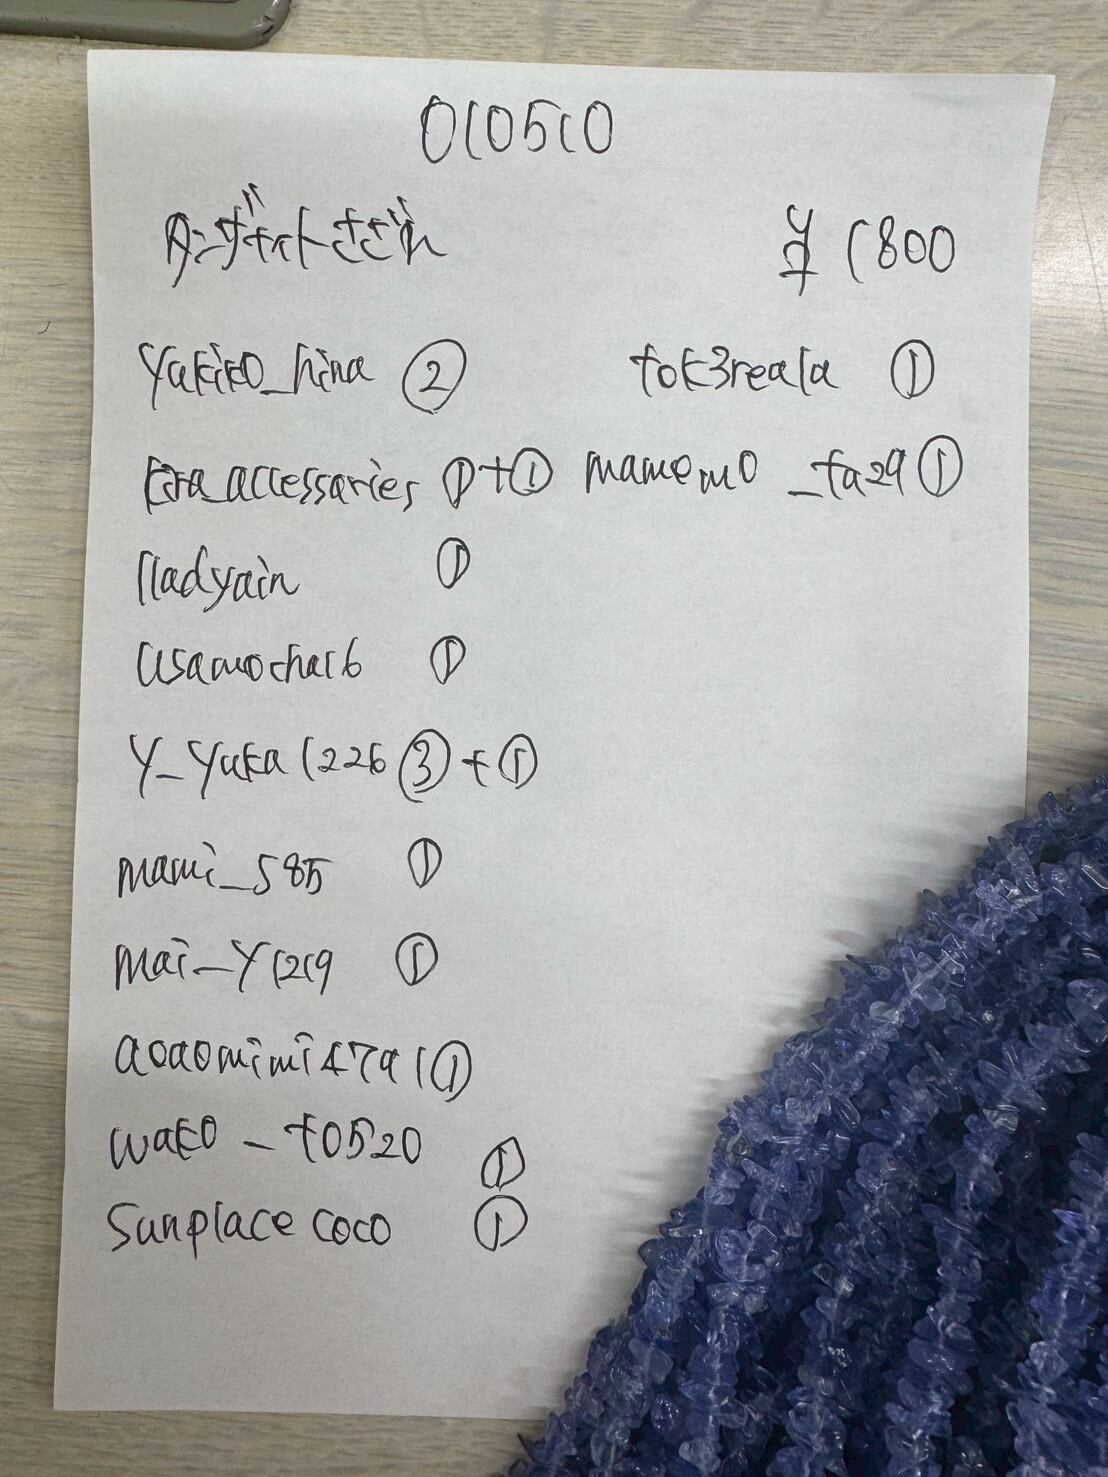 010510
タンザナイトさざれ ¥1800
yukiko_hina ② tok3reala ①
kira_accessaries ①+① mamemo_ta29 ①
lladyain ①
usamochai6 ①
y_yuka1226 ③+①
mami_585 ①
mai_y1219 ①
aoaomimi4791 ①
wako_t0520 ①
sunplacecoco ①